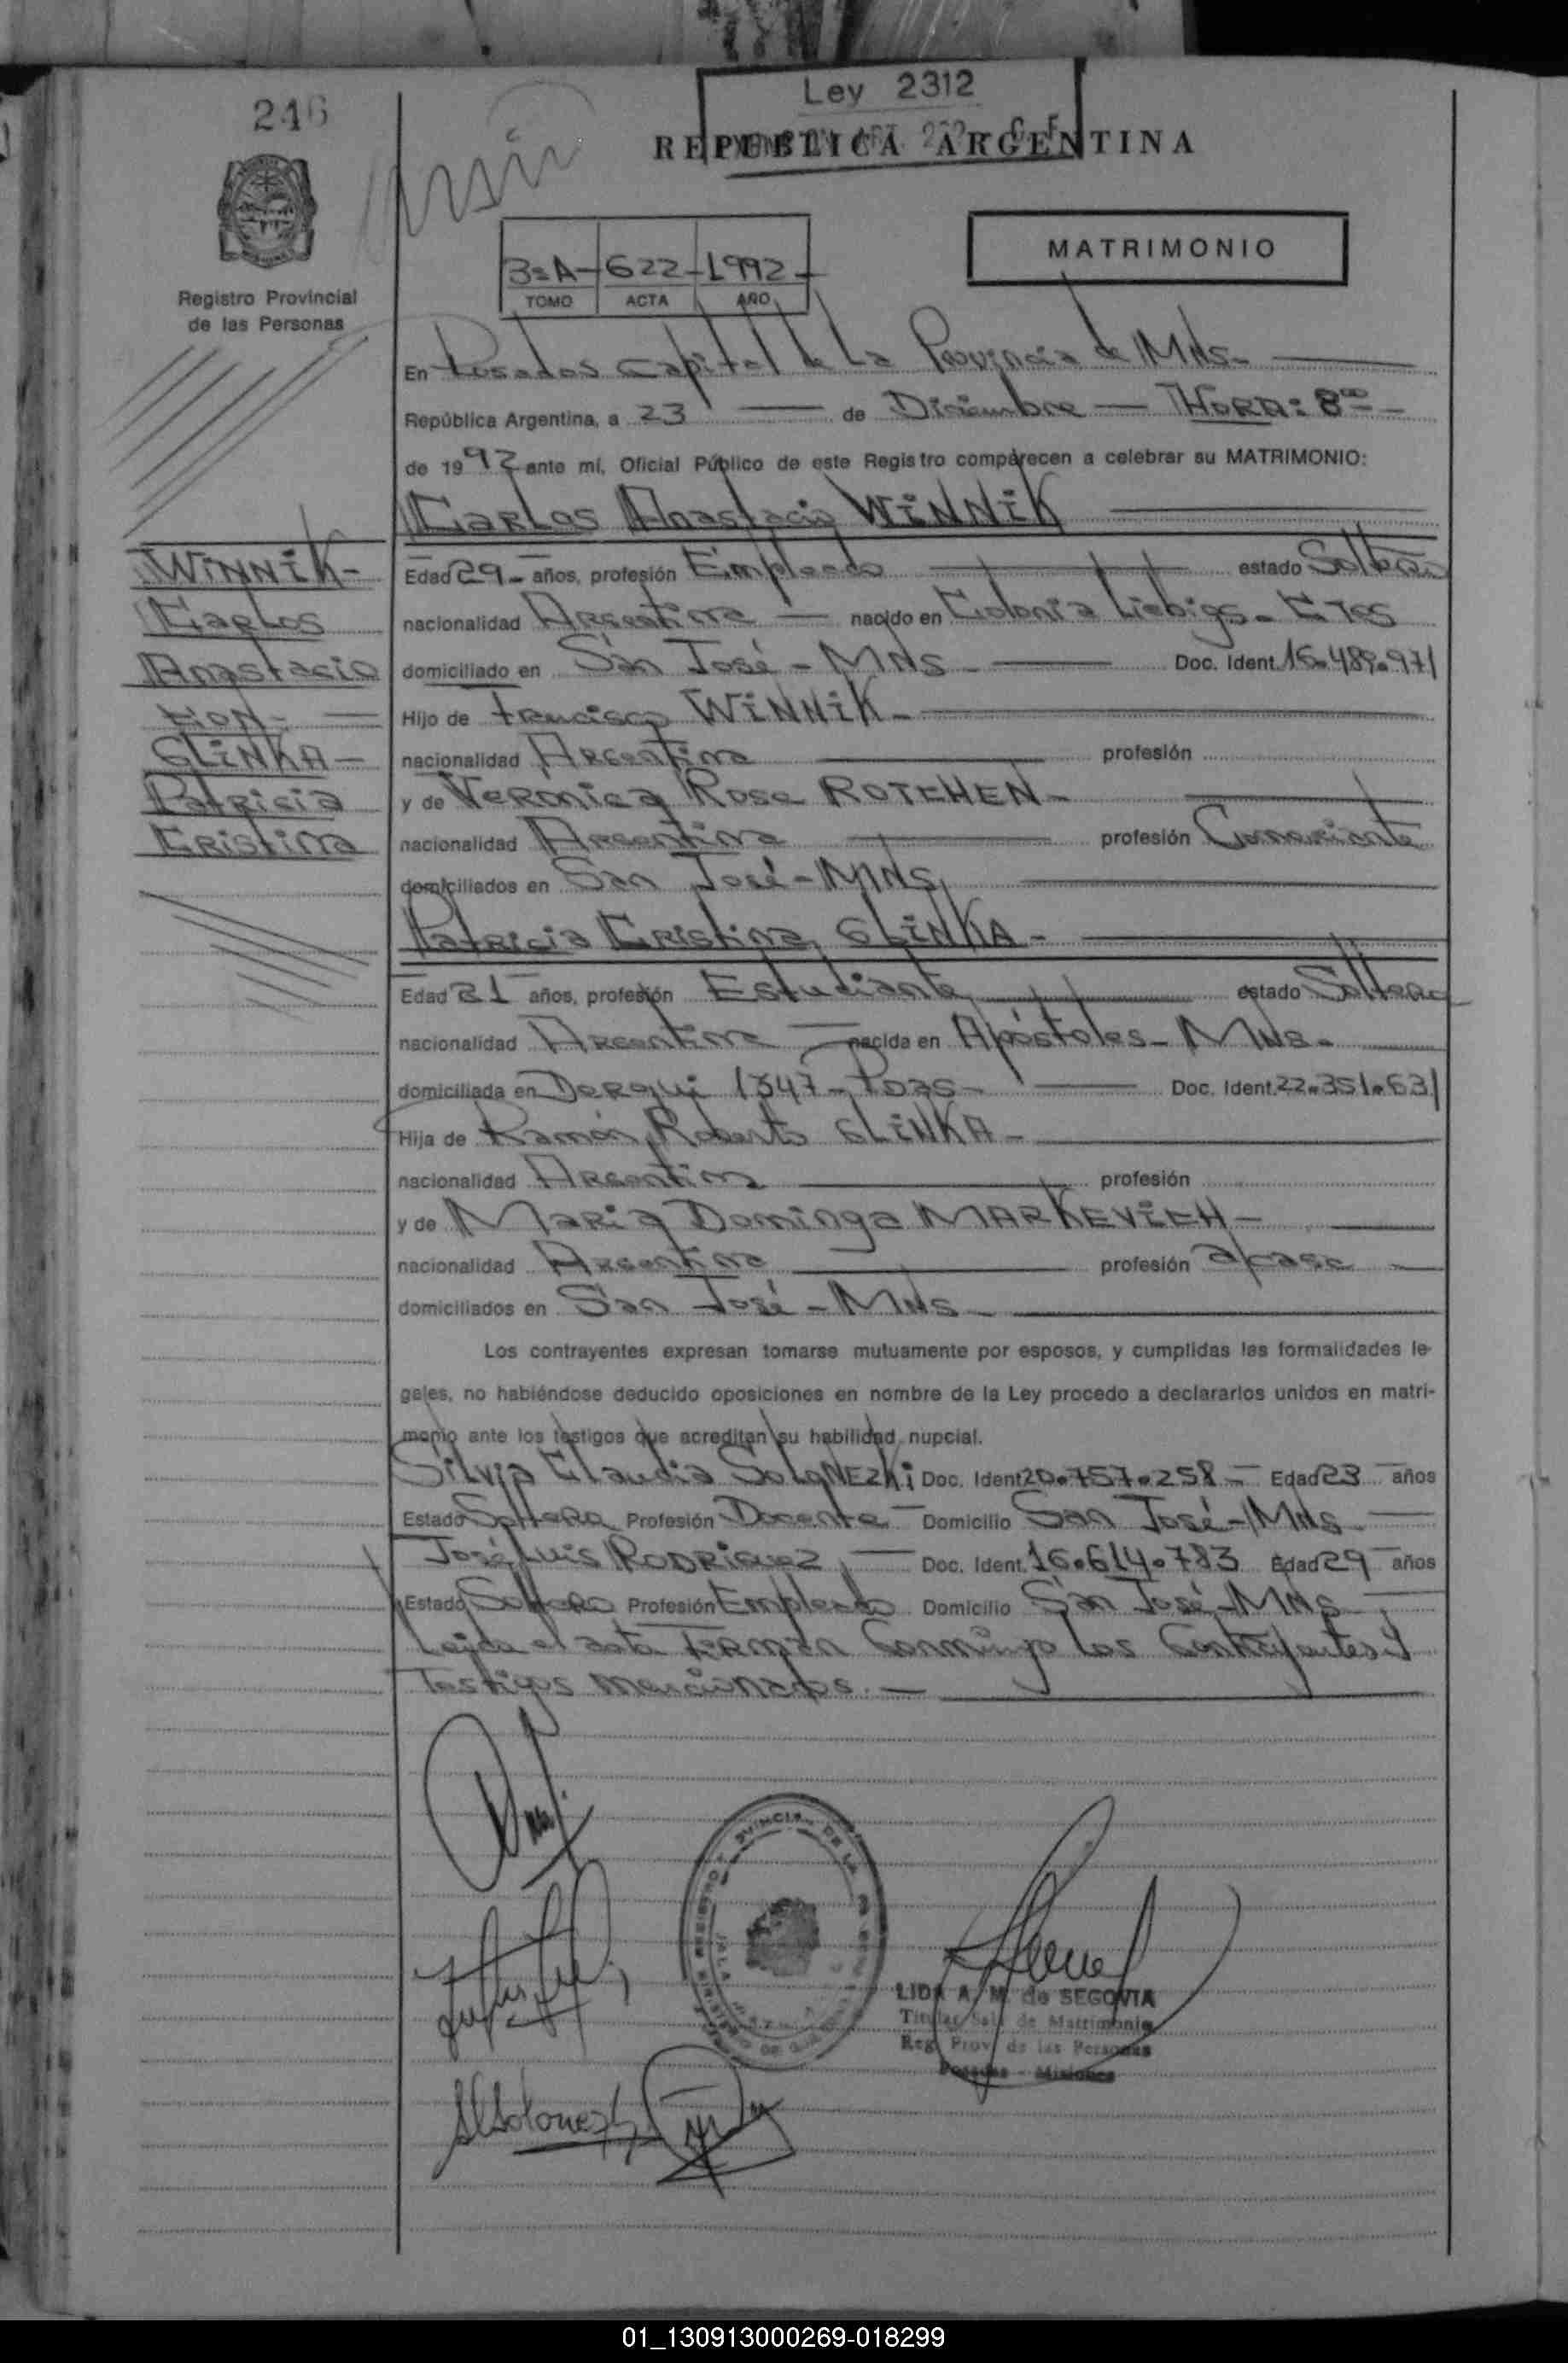 246
Ley 2312
REPUBLICA ARGENTINA
Registro Provincial
de las Personas
3=A-622-1992-
TOMO ACTA AÑO
MATRIMONIO
En Posadas Capital de La Provincia de MNS-
República Argentina, a 23 de Diciembre - HORA: 8=
de 1992 ante mí, Oficial Público de este Registro comparecen a celebrar su MATRIMONIO:
Carlos Anastacio WINNIK
WINNIK-
Carlos
Anastacio
CON-
GLINKA-
Patricia
Cristina
Edad 29- años, profesión Empleado estado Soltero
nacionalidad Argentina nacido en Colonia Liebigs- CTES
domiciliado en San José - MNS - Doc. Ident. 16.489.971
Hijo de Francisco WINNIK-
nacionalidad Argentina profesión
y de Veronica Rosa ROTCHEN-
nacionalidad Argentina profesión Comerciante
domiciliados en San José - MNS
Patricia Cristina GLINKA-
Edad 21 años, profesión Estudiante estado Soltera
nacionalidad Argentina nacida en Apóstoles- MNS-
domiciliada en Derqui 1347- Pdas- Doc. Ident. 22.351.631
Hija de Ramón Roberto GLINKA-
nacionalidad Argentina profesión
y de Maria Dominga MARKEVICH-
nacionalidad Argentina profesión a/casa
domiciliados en San José - MNS
Los contrayentes expresan tomarse mutuamente por esposos, y cumplidas las formalidades le-
gales, no habiéndose deducido oposiciones en nombre de la Ley procedo a declararlos unidos en matri-
monio ante los testigos que acreditan su habilidad nupcial.
Silvia Claudia SoloNEZKi Doc. Ident. 20.757.258- Edad 23 años
Estado Soltera Profesión Docente Domicilio San José - MNS
José Luis RODRIGUEZ Doc. Ident. 16.614.783 Edad 29 años
Estado Soltero Profesión Empleado Domicilio San José - MNS
Leida el acta FIRMAN Conmigo Los Contrayentes y
Testigos mencionados. -
LIDA A. M. de SEGOVIA
Titular Sala de Matrimonio
Reg. Prov. de las Personas
Posadas - Misiones
01_130913000269-018299